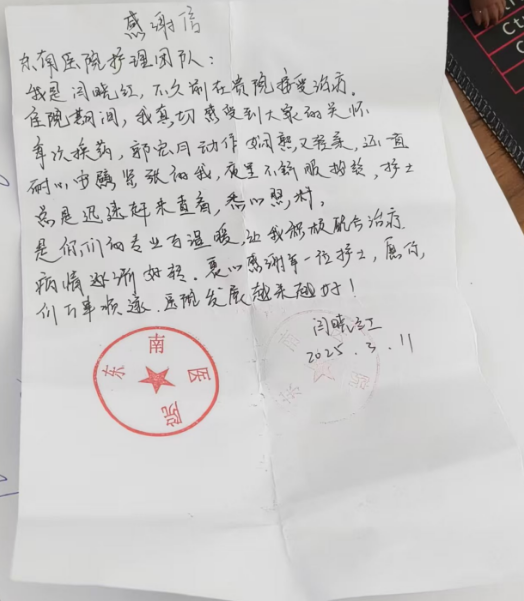 感谢信
东南医院护理团队：
我是闫晓红，不久前在贵院接受治疗。
住院期间，我真切感受到大家的关怀
每次换药，郭宏月动作娴熟又轻柔，还一直
耐心安慰紧张的我，夜里不舒服按铃，护士
总是迅速赶来查看，悉心照料，
是你们的专业与温暖，让我积极配合治疗
病情逐渐好转。衷心感谢每一位护士，愿你
们万事顺遂，医院发展越来越好！
闫晓红
2025.3.11
东南医院